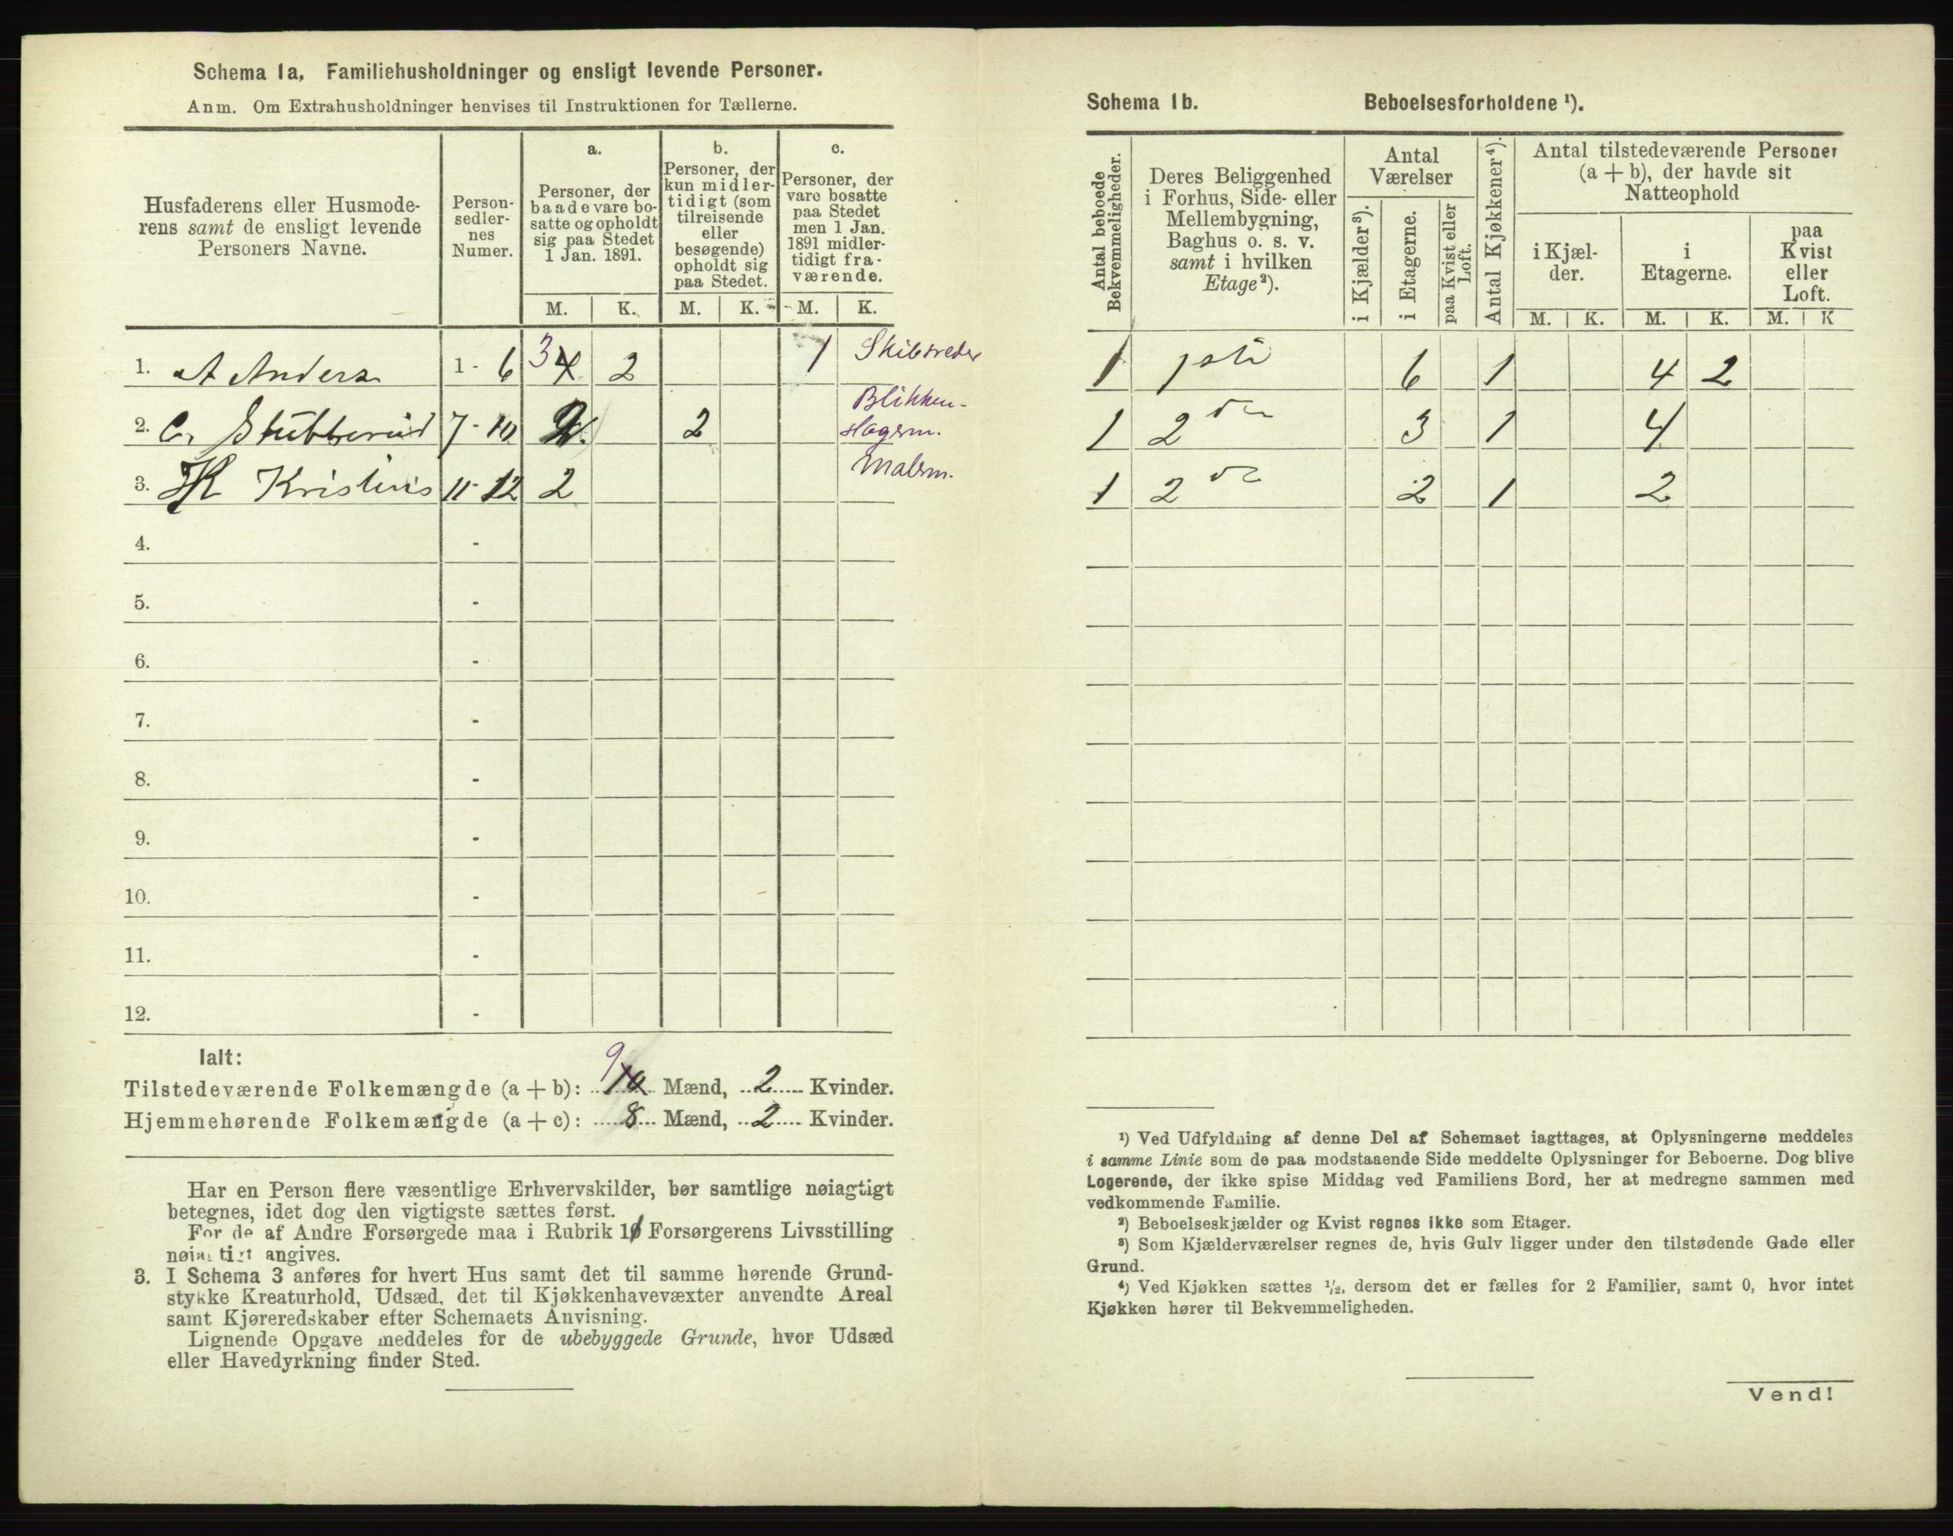 Schema 1a, Familiehusholdninger og ensligt levende Personer.
Anm. Om Extrahusholdninger henvises til Instruktionen for Tællerne.
Husfaderens eller Husmoderens samt de ensligt levende Personers Navne.
Person-sedler-nes Numer.
a.
Personer, der baade vare bosatte og opholdt sig paa Stedet 1 Jan. 1891.
b.
Personer, der kun midlertidigt (som tilreisende eller besøgende) opholdt sig paa Stedet.
c.
Personer, der vare bosatte paa Stedet men 1 Jan. 1891 midlertidigt fraværende.
M. K. M. K. M. K.
1. A Anders 1 - 6 3 4 2 1 Skibsreder
2. C. Stubberud 7 - 10 2 2 Blikken-
slagerm.
3. K Kristins 11 - 12 2 Malerm.
4. -
5. -
6. -
7. -
8. -
9. -
10. -
11. -
12. -
Ialt:
9
Tilstedeværende Folkemængde (a + b): 10 Mænd, 2 Kvinder.
Hjemmehørende Folkemængde (a + c): 8 Mænd, 2 Kvinder.
Har en Person flere væsentlige Erhvervskilder, bør samtlige nøiagtigt
betegnes, idet dog den vigtigste sættes først.
For de af Andre Forsørgede maa i Rubrik 10 Forsørgerens Livsstilling
nøiagtigt angives.
3. I Schema 3 anføres for hvert Hus samt det til samme hørende Grund-
stykke Kreaturhold, Udsæd, det til Kjøkkenhavevæxter anvendte Areal
samt Kjøreredskaber efter Schemaets Anvisning.
Lignende Opgave meddeles for de ubebyggede Grunde, hvor Udsæd
eller Havedyrkning finder Sted.
Schema 1b. Beboelsesforholdene ¹).
Antal beboede Bekvemmeligheder.
Deres Beliggenhed i Forhus, Side- eller Mellembygning, Baghus o. s. v. samt i hvilken Etage²).
Antal Værelser
i Kjælder³).
i Etagerne.
paa Kvist eller Loft.
Antal Kjøkkener⁴).
Antal tilstedeværende Personer (a + b), der havde sit Natteophold
i Kjælder.
i Etagerne.
paa Kvist eller Loft.
M. K. M. K. M. K
1 1ste 6 1 4 2
1 2den 3 1 4
1 2den 2 1 2
¹) Ved Udfyldning af denne Del af Schemaet iagttages, at Oplysningerne meddeles
i samme Linie som de paa modstaaende Side meddelte Oplysninger for Beboerne. Dog blive
Logerende, der ikke spise Middag ved Familiens Bord, her at medregne sammen med
vedkommende Familie.
²) Beboelseskjælder og Kvist regnes ikke som Etager.
³) Som Kjælderværelser regnes de, hvis Gulv ligger under den tilstødende Gade eller
Grund.
⁴) Ved Kjøkken sættes ¹/₂, dersom det er fælles for 2 Familier, samt 0, hvor intet
Kjøkken hører til Bekvemmeligheden.
Vend!